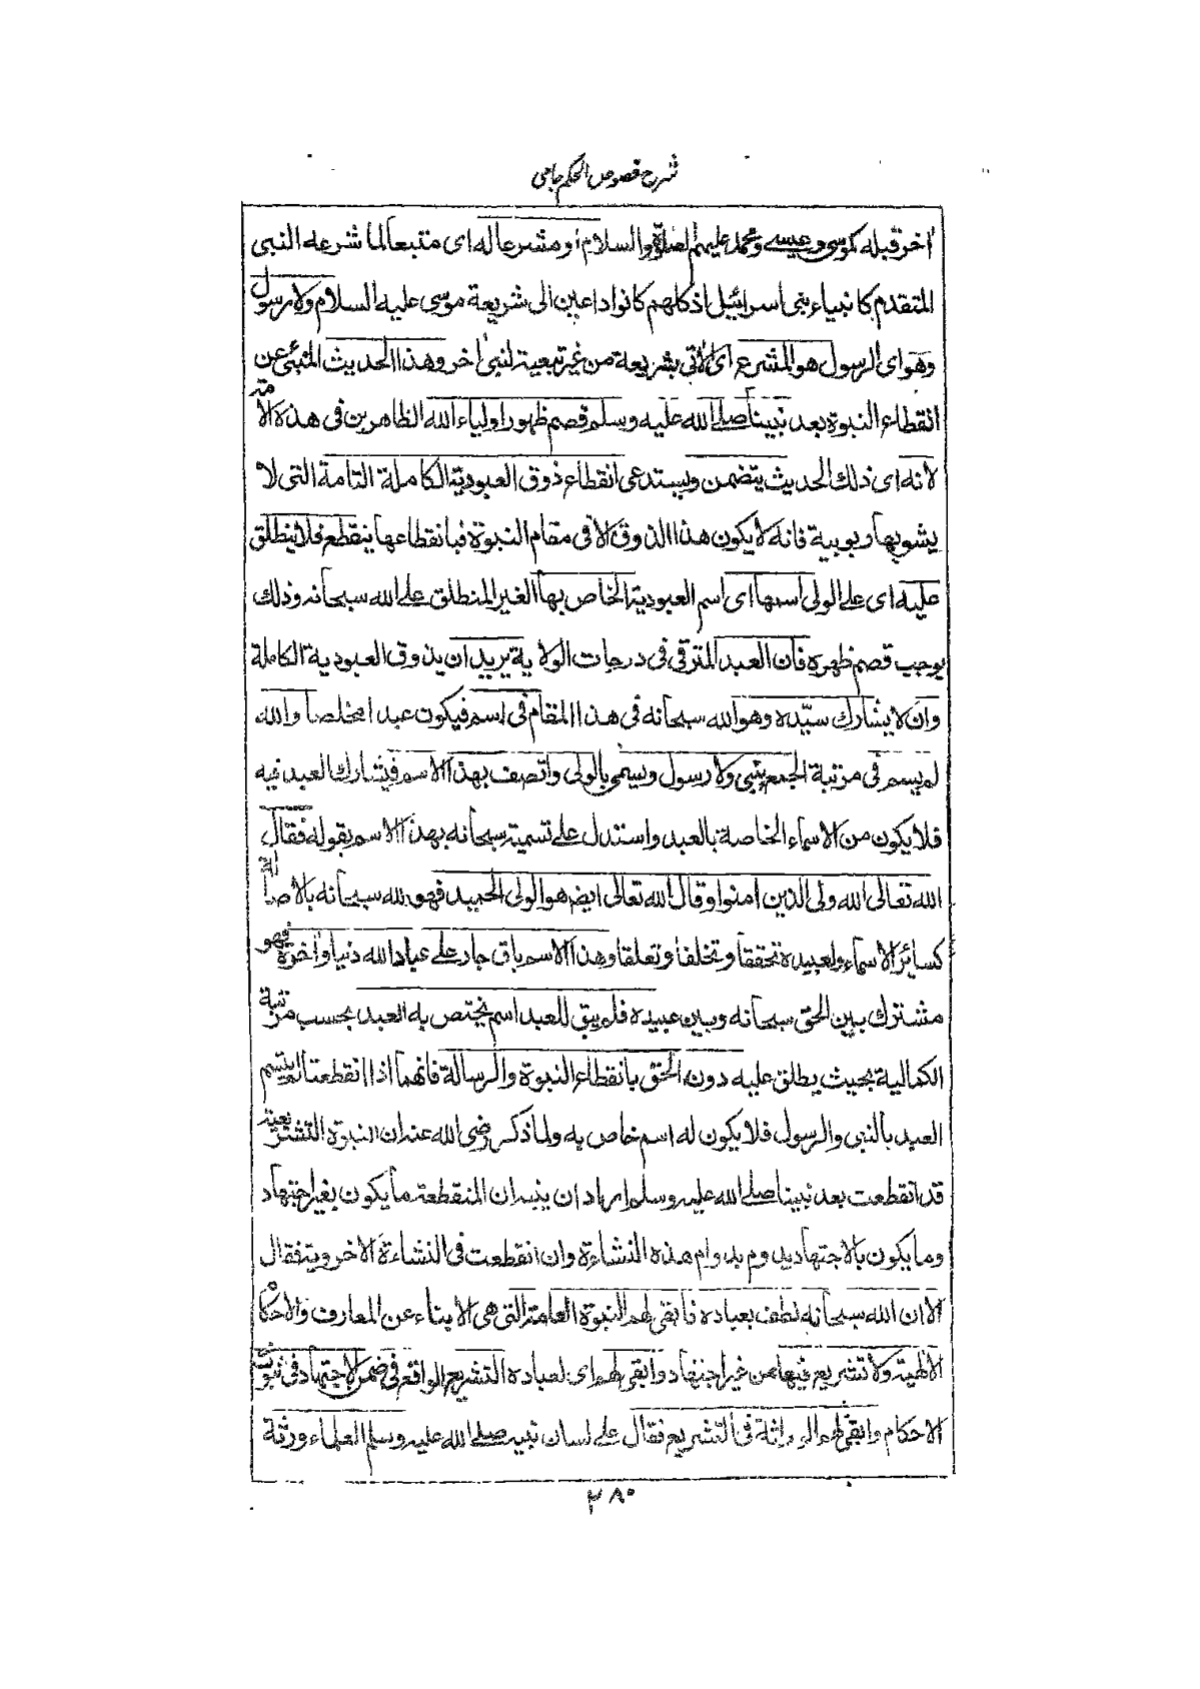 شرح فصوص الحكم جامى
اخر قبله كموسى وعيسى ومحمد عليهم الصلوة والسلام أو مشرعا له اى متبعا لما شرعه النبى
المتقدم كانبياء بنى اسرائيل اذ كلهم كانوا داعين الى شريعة موسى عليه السلام ولا رسول
وهو اى الرسول هو المشرع اى الآتى بشريعة من غير تبعية لنبى اخر وهذا الحديث المنبئ عن
انقطاع النبوة بعد نبينا صلى الله عليه وسلم قصم ظهور اولياء الله الظاهرين فى هذه الامة
لانه اى ذلك الحديث يتضمن ويستدعى انقطاع ذوق العبودية الكاملة التامة التى لا
يشوبها ربوبية فانه لا يكون هذا الذوق الا فى مقام النبوة فبانقطاعها ينقطع فلا ينطلق
عليه اى على الولى اسمها اى اسم العبودية الخاص بها الغير المنطلق على الله سبحانه وذلك
يوجب قصم ظهره فان العبد المترقى فى درجات الولاية يريد ان يذوق العبودية الكاملة
وان لا يشارك سيّده وهو الله سبحانه فى هذا المقام فى اسم فيكون عبدا مخلصا والله
لم يسم فى مرتبة الجمع بنبى ولا رسول وسمى بالولى واتصف بهذا الاسم فيشارك العبد فيه
فلا يكون من الاسماء الخاصة بالعبد واستدل على تسميته سبحانه بهذا الاسم بقوله فقال
الله تعالى الله ولى الذين امنوا وقال الله تعالى ايضا هو الولى الحميد فهو لله سبحانه بالاصالة
كسائر الاسماء ولعبيده تحققا وتخلقا وتعلقا وهذا الاسم باق جار على عباد الله دنيا واخرة فهو
مشترك بين الحق سبحانه وبين عبيده فلم يبق للعبد اسم يختص به العبد بحسب مرتبة
الكمالية بحيث يطلق عليه دون الحق بانقطاع النبوة والرسالة فانهما اذا انقطعتا لم يتسم
العبد بالنبى والرسول فلا يكون له اسم خاص به ولما ذكر رضى الله عنه ان النبوة التشريعية
قد انقطعت بعد نبينا صلى الله عليه وسلم اراد ان ينبه ان المنقطعة ما يكون بغير اجتهاد
وما يكون بالاجتهاد يدوم بدوام هذه النشاءة وان انقطعت فى النشاءة الاخروية فقال
الا ان الله سبحانه لطف بعباده فابقى لهم النبوة العامة التى هى الانباء عن المعارف والاحكام
الالهية ولا تشريع فيها من غير اجتهاد وابقى لهم اى لعباده التشريع الواقع فى ضمن الاجتهاد فى ثبوت
الاحكام وابقى لهم الوراثة فى التشريع فقال على لسان نبيه صلى الله عليه وسلم العلماء ورثة
٢٨٠